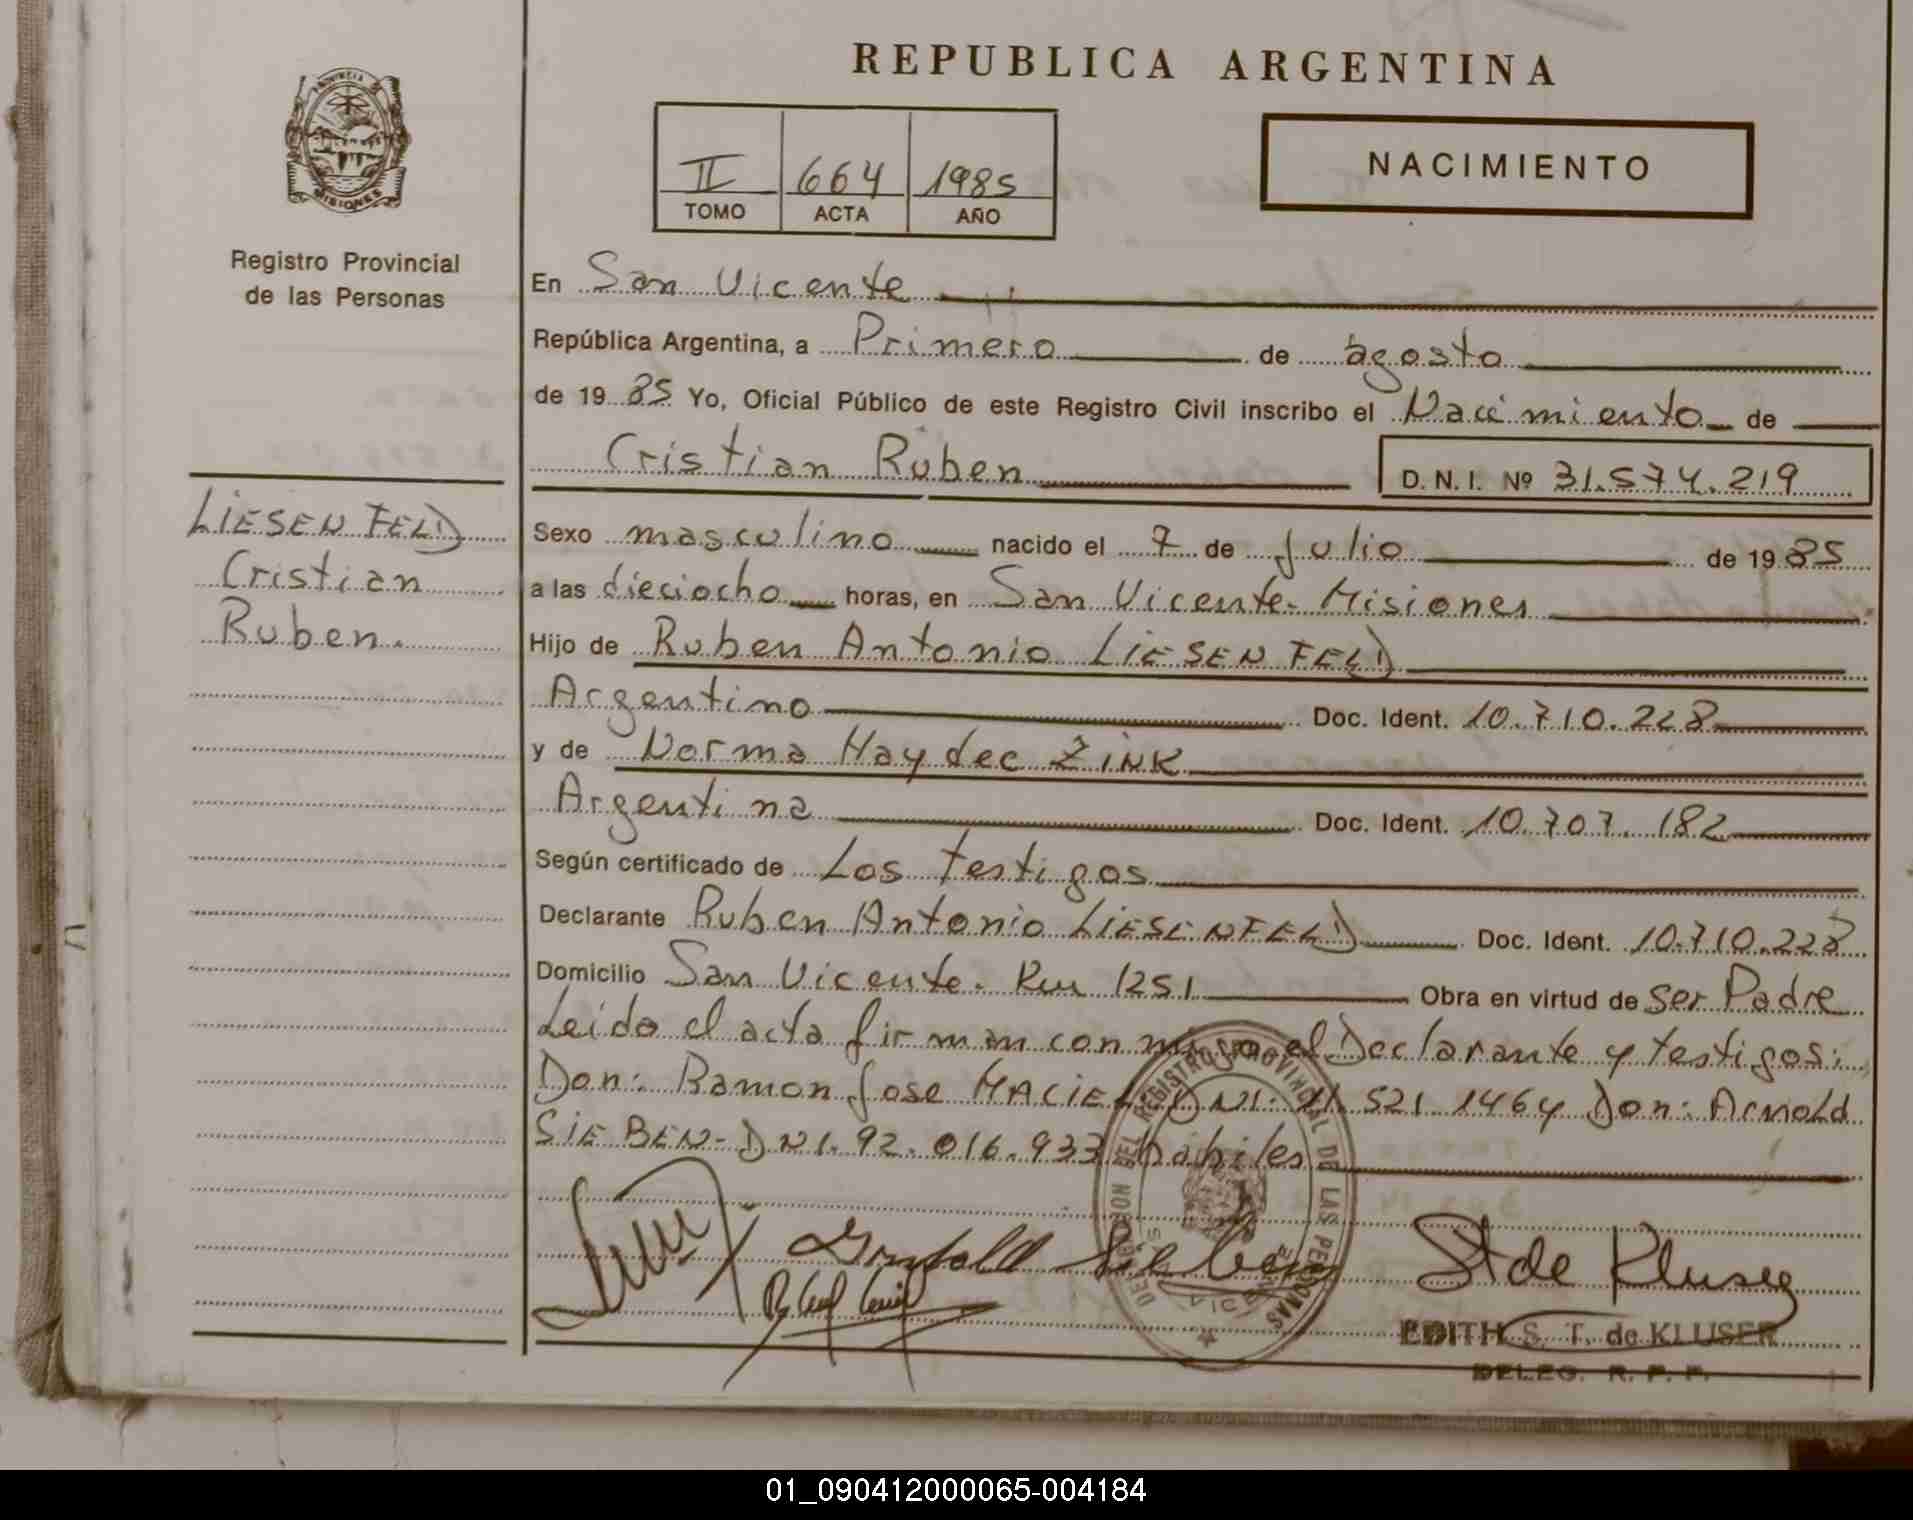 REPUBLICA ARGENTINA
PROVINCIA
MISIONES
Registro Provincial
de las Personas
II 664 1985
TOMO ACTA AÑO
NACIMIENTO
En San Vicente
República Argentina, a Primero de agosto
de 1985 Yo, Oficial Público de este Registro Civil inscribo el Nacimiento de
Cristian Ruben D.N.I. Nº 31.574.219
LIESENFELD
Cristian
Ruben.
Sexo masculino nacido el 7 de Julio de 1985
a las dieciocho horas, en San Vicente. Misiones
Hijo de Ruben Antonio LIESENFELD
Argentino Doc. Ident. 10.710.228
y de Norma Haydee ZINK
Argentina Doc. Ident. 10.707.182
Según certificado de Los testigos
Declarante Ruben Antonio LIESENFELD Doc. Ident. 10.710.228
Domicilio San Vicente. Km 1251 Obra en virtud de Ser Padre
Leido el acta firman con migo el Declarante y testigos:
Don: Ramon Jose MACIEL DNI. 11.521.1464 Don: Arnold
SIEBEN-DNI.92.016.933 habiles
DELEGACION DEL REGISTRO PROVINCIAL DE LAS PERSONAS
St de Kluser
EDITH S. T. de KLUSER
DELEG. R. P. P.
01_090412000065-004184